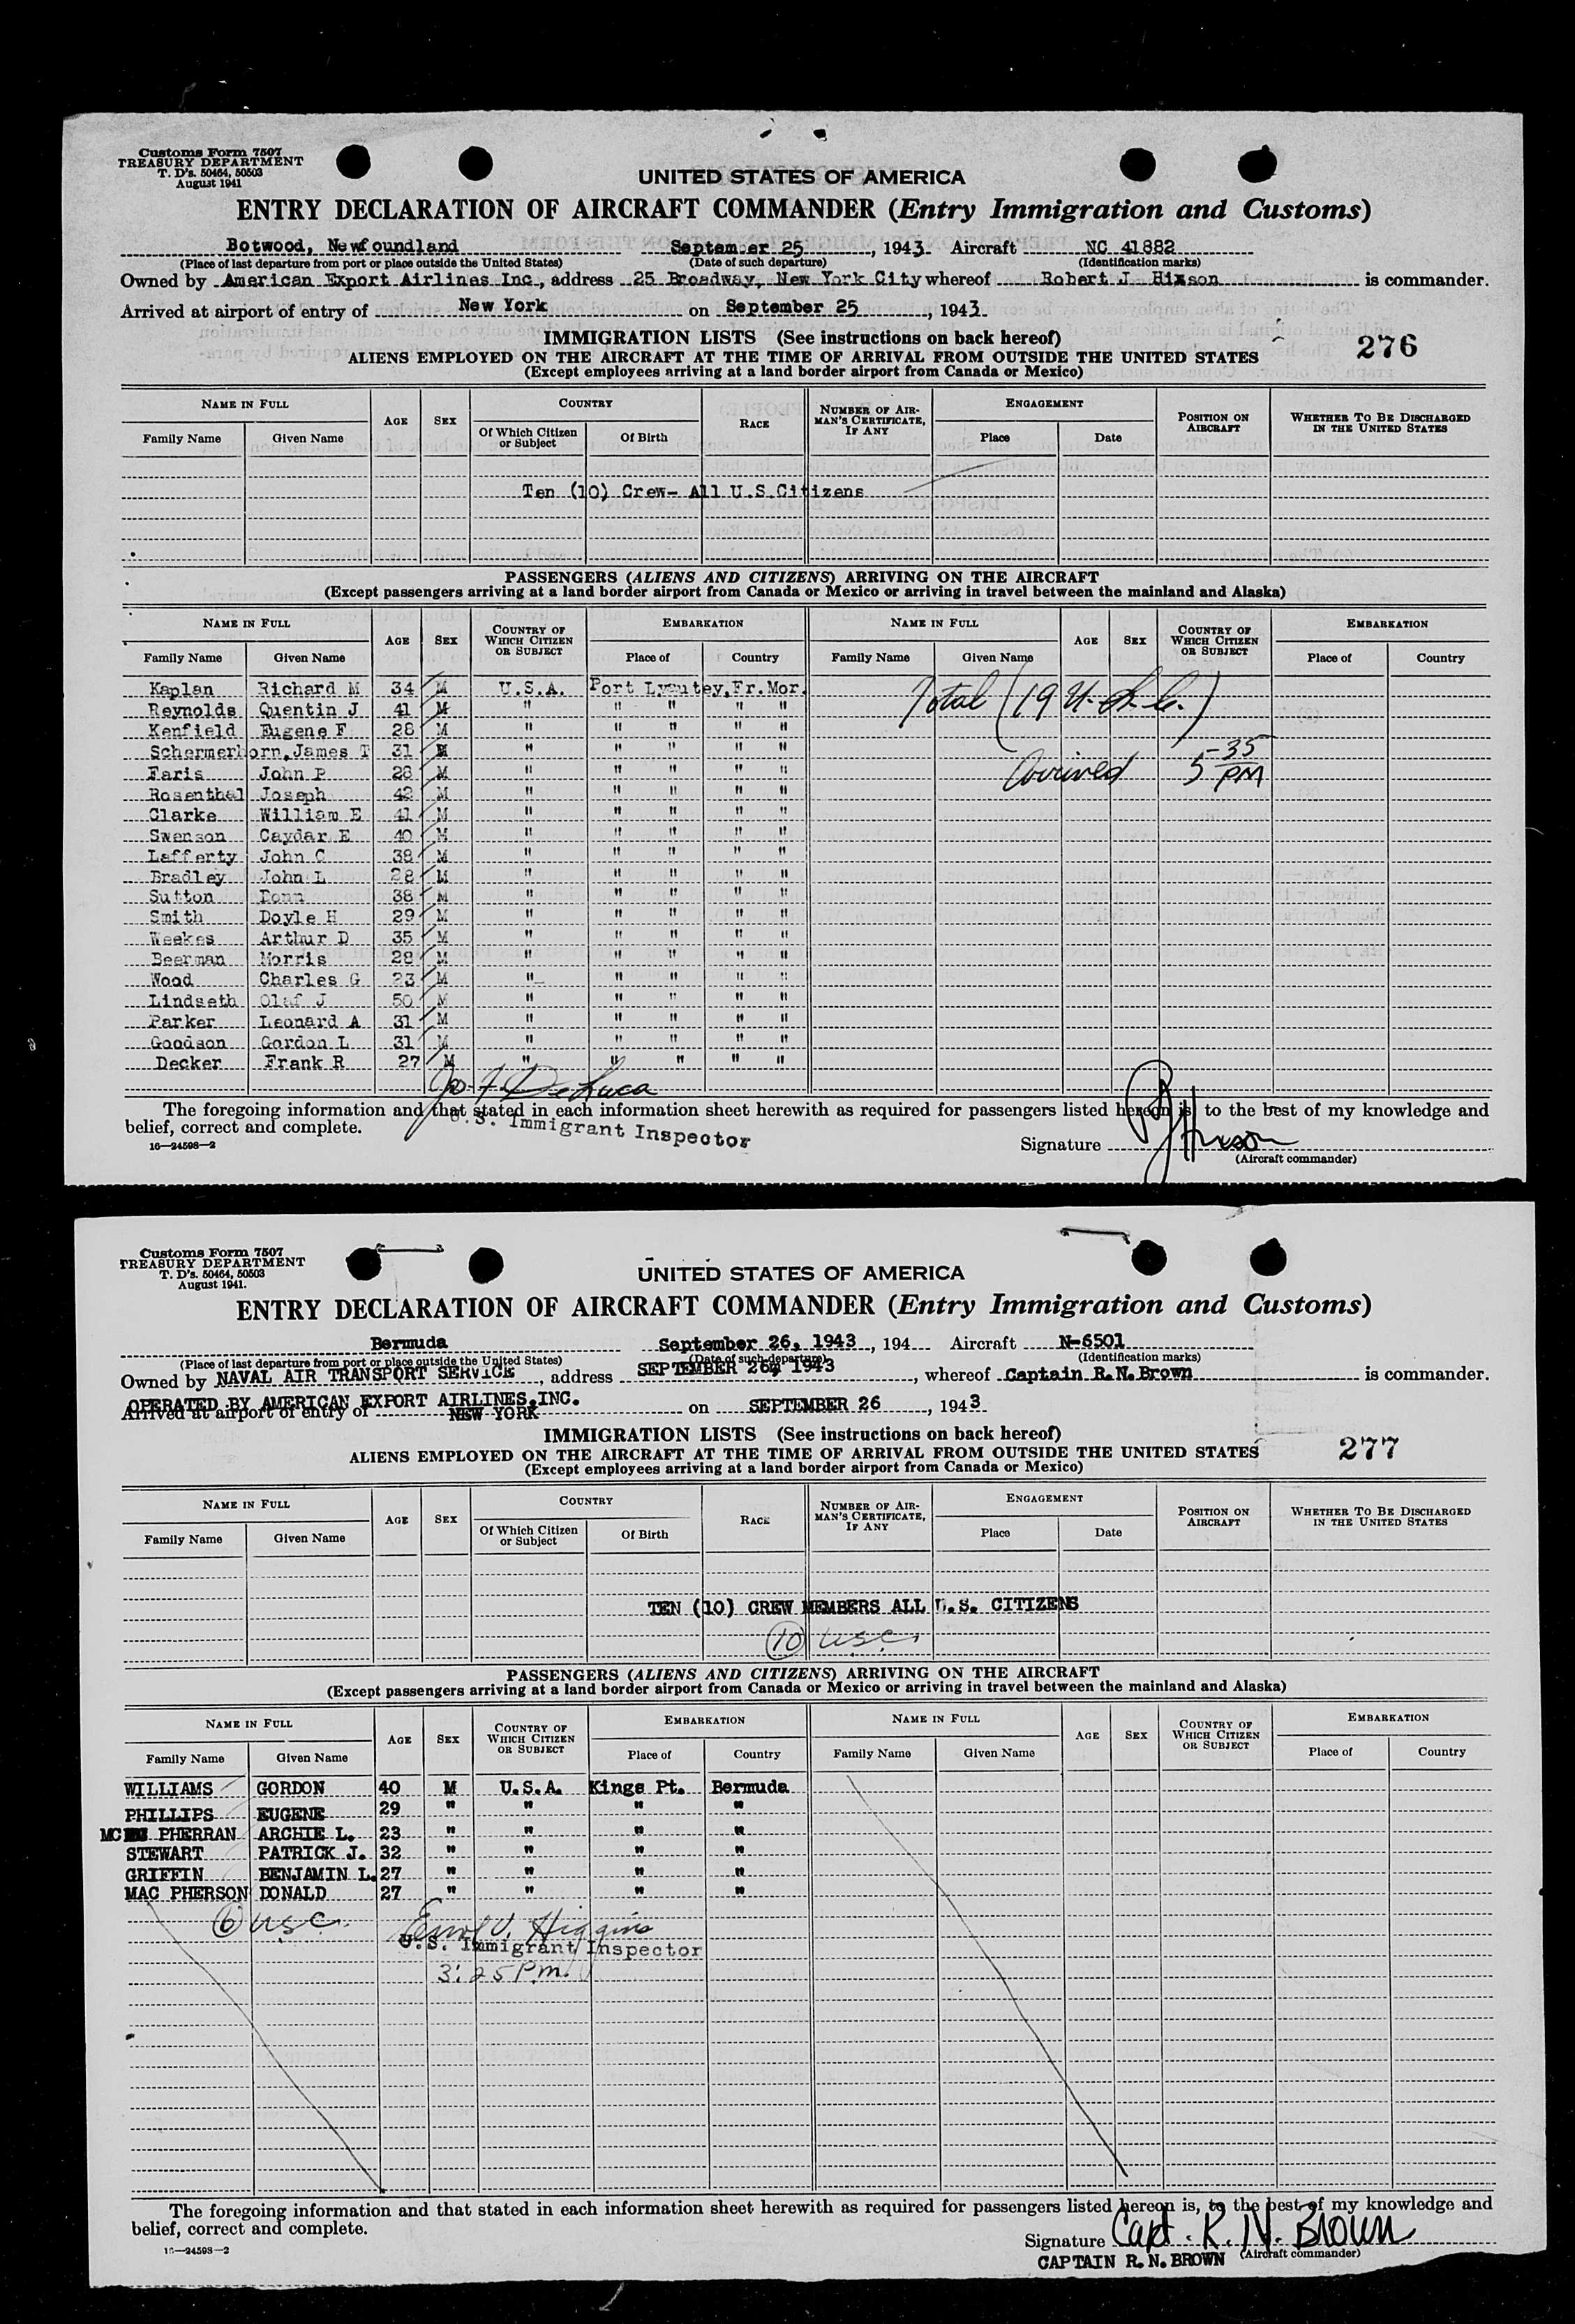 Customs Form 7507
TREASURY DEPARTMENT
T. D's. 50464, 50503
August 1941
UNITED STATES OF AMERICA
ENTRY DECLARATION OF AIRCRAFT COMMANDER (Entry Immigration and Customs)
Botwood, Newfoundland September 25, 1943 Aircraft NC 41882
(Place of last departure from port or place outside the United States) (Date of such departure) (Identification marks)
Owned by American Export Airlines Inc, address 25 Broadway, New York City whereof Robert J Hixson is commander.
Arrived at airport of entry of New York on September 25, 1943
IMMIGRATION LISTS (See instructions on back hereof)
276
ALIENS EMPLOYED ON THE AIRCRAFT AT THE TIME OF ARRIVAL FROM OUTSIDE THE UNITED STATES
(Except employees arriving at a land border airport from Canada or Mexico)
NAME IN FULL AGE SEX COUNTRY RACE NUMBER OF AIRMAN'S CERTIFICATE, IF ANY ENGAGEMENT POSITION ON AIRCRAFT WHETHER TO BE DISCHARGED IN THE UNITED STATES
Family Name Given Name Of Which Citizen or Subject Of Birth Place Date
Ten (10) Crew- All U.S.Citizens
PASSENGERS (ALIENS AND CITIZENS) ARRIVING ON THE AIRCRAFT
(Except passengers arriving at a land border airport from Canada or Mexico or arriving in travel between the mainland and Alaska)
NAME IN FULL AGE SEX COUNTRY OF WHICH CITIZEN OR SUBJECT EMBARKATION NAME IN FULL AGE SEX COUNTRY OF WHICH CITIZEN OR SUBJECT EMBARKATION
Family Name Given Name Place of Country Family Name Given Name Place of Country
Kaplan Richard M 34 M U.S.A. Port Lyautey, Fr. Mor. Total (19 U.S.C.)
Reynolds Quentin J 41 M " " " " "
Kenfield Eugene F 28 M " " " " "
Schermerhorn, James T 31 M " " " " "
Arrived 5-35 PM
Faris John P 28 M " " " " "
Rosenthal Joseph 42 M " " " " "
Clarke William E 41 M " " " " "
Swenson Caydar E 40 M " " " " "
Lafferty John C 38 M " " " " "
Bradley John L 28 M " " " " "
Sutton Donn 38 M " " " " "
Smith Doyle H 29 M " " " " "
Weekes Arthur D 35 M " " " " "
Beerman Morris 28 M " " " " "
Wood Charles G 23 M " " " " "
Lindseth Olaf J 50 M " " " " "
Parker Leonard A 31 M " " " " "
Goodson Gordon L 31 M " " " " "
Decker Frank R 27 M " " " " "
Jos. F. DeLuca
The foregoing information and that stated in each information sheet herewith as required for passengers listed hereon is, to the best of my knowledge and
belief, correct and complete.
U.S. Immigrant Inspector
16—24598—2
Signature RJHixson
(Aircraft commander)
Customs Form 7507
TREASURY DEPARTMENT
T. D's. 50464, 50503
August 1941.
UNITED STATES OF AMERICA
ENTRY DECLARATION OF AIRCRAFT COMMANDER (Entry Immigration and Customs)
Bermuda September 26, 1943, 194 Aircraft N-6501
(Place of last departure from port or place outside the United States) (Date of such departure) (Identification marks)
Owned by NAVAL AIR TRANSPORT SERVICE, address SEPTEMBER 26, 1943, whereof Captain R.N.Brown is commander.
OPERATED BY AMERICAN EXPORT AIRLINES,INC.
Arrived at airport of entry of NEW YORK on SEPTEMBER 26, 1943
IMMIGRATION LISTS (See instructions on back hereof)
277
ALIENS EMPLOYED ON THE AIRCRAFT AT THE TIME OF ARRIVAL FROM OUTSIDE THE UNITED STATES
(Except employees arriving at a land border airport from Canada or Mexico)
NAME IN FULL AGE SEX COUNTRY RACE NUMBER OF AIRMAN'S CERTIFICATE, IF ANY ENGAGEMENT POSITION ON AIRCRAFT WHETHER TO BE DISCHARGED IN THE UNITED STATES
Family Name Given Name Of Which Citizen or Subject Of Birth Place Date
TEN (10) CREW MEMBERS ALL U.S. CITIZENS
10 usc.
PASSENGERS (ALIENS AND CITIZENS) ARRIVING ON THE AIRCRAFT
(Except passengers arriving at a land border airport from Canada or Mexico or arriving in travel between the mainland and Alaska)
NAME IN FULL AGE SEX COUNTRY OF WHICH CITIZEN OR SUBJECT EMBARKATION NAME IN FULL AGE SEX COUNTRY OF WHICH CITIZEN OR SUBJECT EMBARKATION
Family Name Given Name Place of Country Family Name Given Name Place of Country
WILLIAMS GORDON 40 M U.S.A. Kings Pt. Bermuda
PHILLIPS EUGENE 29 " " " "
MC PHERRAN ARCHIE L. 23 " " " "
STEWART PATRICK J. 32 " " " "
GRIFFIN BENJAMIN L. 27 " " " "
MAC PHERSON DONALD 27 " " " "
6 usc. Higgins
U.S. Immigrant Inspector
3:25 Pm.
The foregoing information and that stated in each information sheet herewith as required for passengers listed hereon is, to the best of my knowledge and
belief, correct and complete.
16—24598—2
Signature Capt. R. N. Brown
CAPTAIN R.N.BROWN (Aircraft commander)